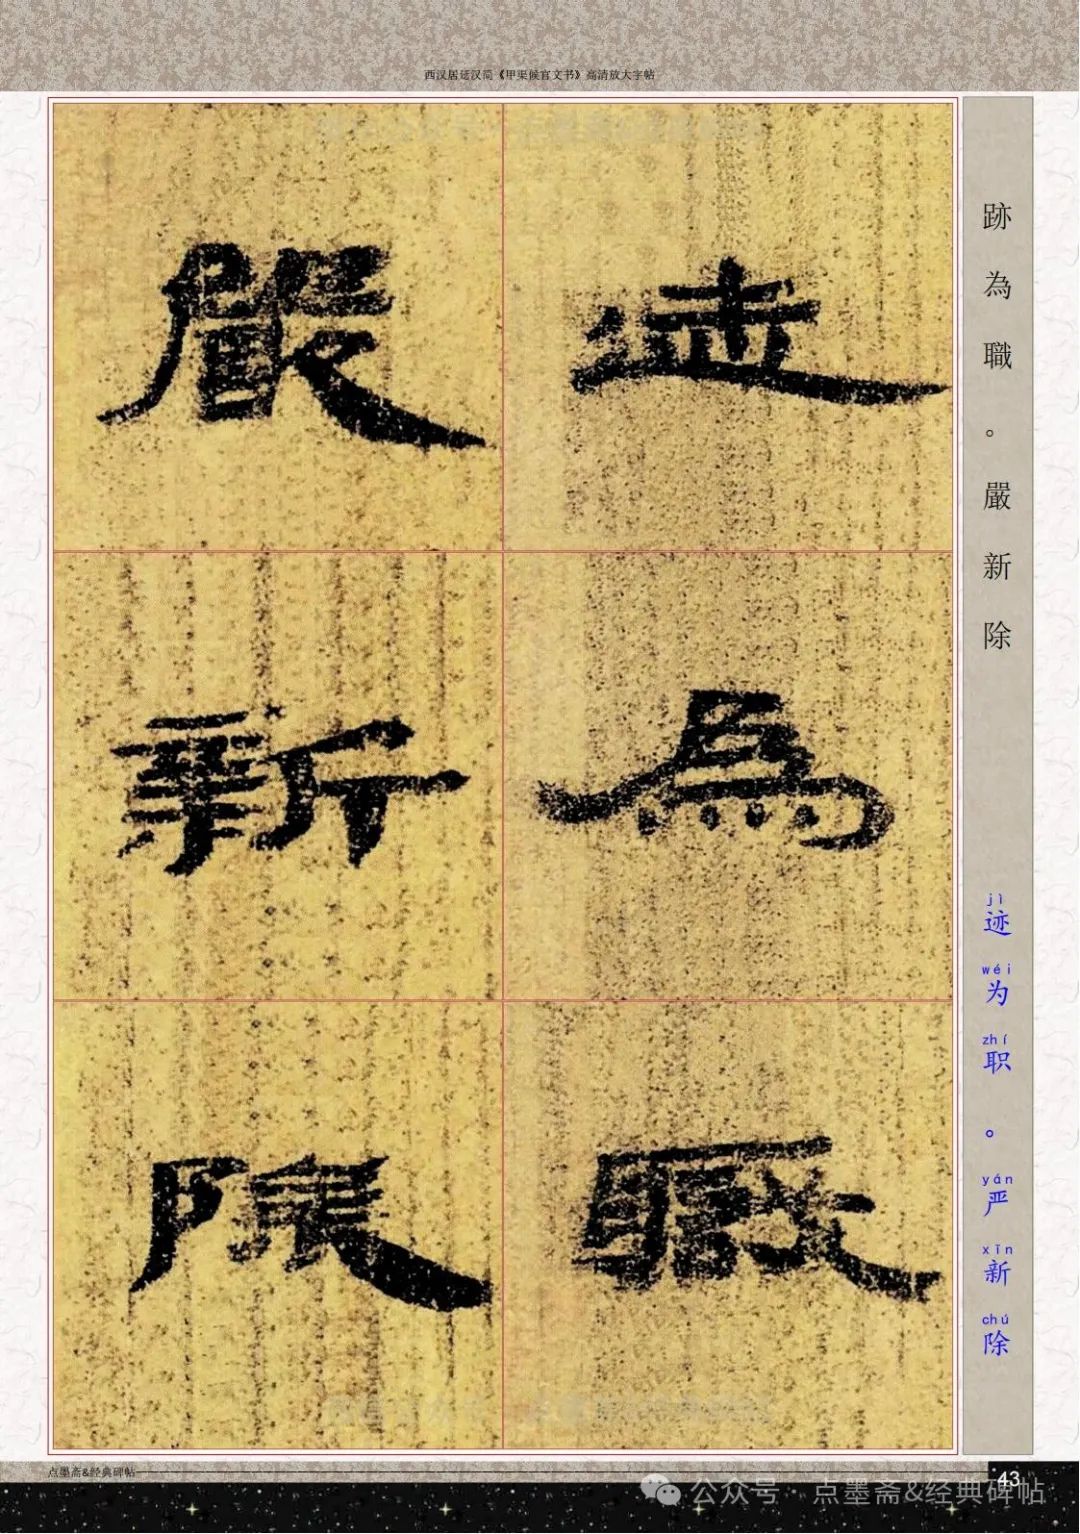 西汉居延汉简《甲渠候官文书》高清放大字帖
跡為職。嚴新除
jì wéi zhí yán xīn chú
迹为职。严新除
迹為職
嚴新除
点墨斋&经典碑帖
43
公众号 · 点墨斋&经典碑帖